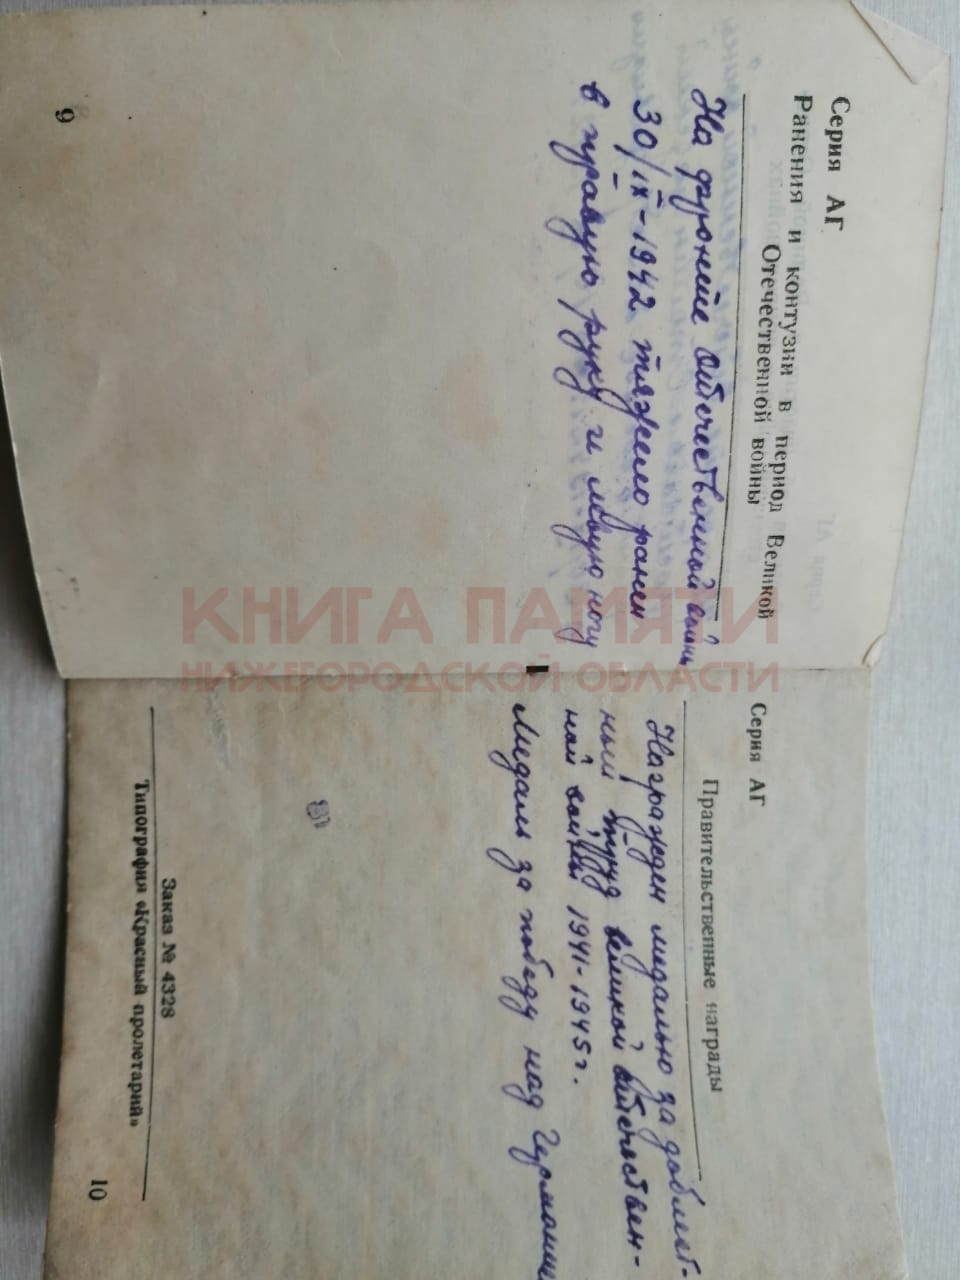 Серия АГ
Ранения и контузии в период Великой
Отечественной войны
На фронте отечественной войны
30/IX-1942 тяжело ранен
в правую руку и левую ногу
9
Серия АГ
Правительственные награды
Награжден медалью за доблест-
ный труд великой отечествен-
ной войны 1941-1945г.
Медаль за победу над Германией
Заказ № 4328
Типография «Красный пролетарий»
10
КНИГА ПАМЯТИ
НИЖЕГОРОДСКОЙ ОБЛАСТИ